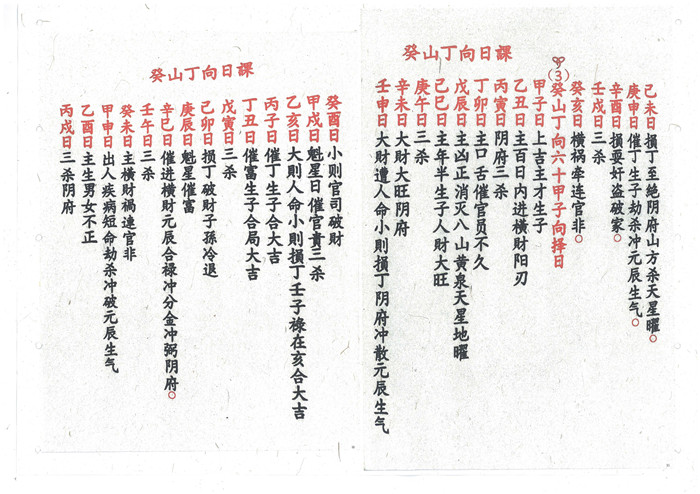 癸山丁向日課
己未日損丁至绝阴府山方杀天星曜。
庚申日催丁生子劫杀冲元辰生气。
辛酉日損耍奸盗破家。
壬戌日三杀
癸亥日横祸牵连官非。
(3)癸山丁向六十甲子向择日
甲子日上吉主才生子
乙丑日主百日内进横財阳刃
丙寅日阴府三杀
丁卯日主口舌催官员不久
戊辰日主凶正消灭八山黄泉天星地曜
己巳日主年半生子人財大旺
庚午日三杀
辛未日大財大旺阴府
壬申日大財遭人命小则損丁阴府冲散元辰生气
癸山丁向日課
癸酉日小则官司破財
甲戌日魁星日催官貴三杀
乙亥日大则人命小则損丁壬子祿在亥合大吉
丙子日催丁生子合大吉
丁丑日催富生子合局大吉
戊寅日三杀
己卯日损丁破財子孫冷退
庚辰日魁星催富
辛巳日催进横財元辰合祿冲分金冲弼阴府。
壬午日三杀
癸未日主横財禍連官非
甲申日出人疾病短命劫杀冲破元辰生气
乙酉日主生男女不正
丙戌日三杀阴府